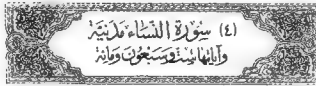 (٤) سورة النساء مدنية
وآياتها ست وسبعون ومائة